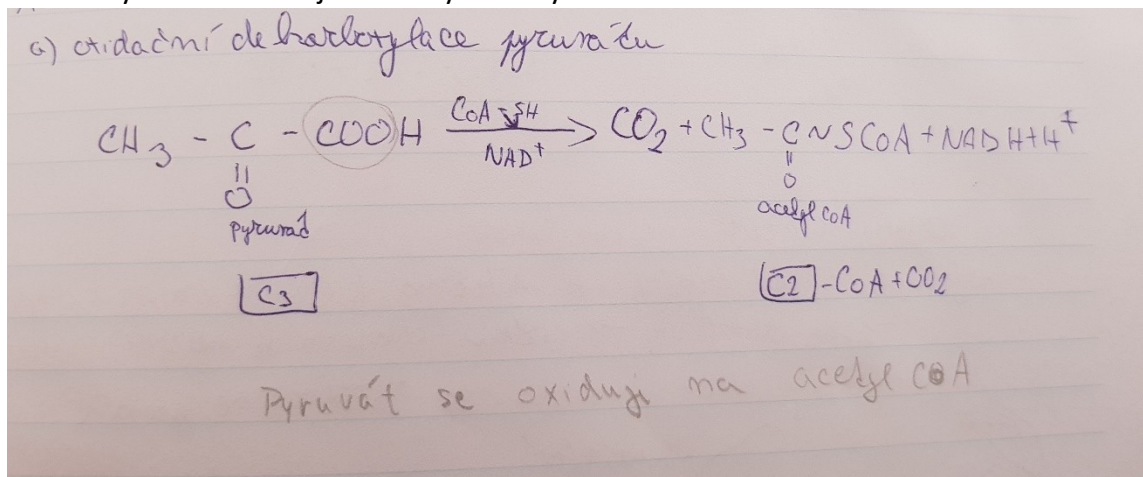 a) oxidační dekarboxylace pyruvátu
CH3 - C - COOH CoA-SH NAD+ → CO2 + CH3 - C ~ SCoA + NADH+H+
|| ||
O O
pyruvát acetyl CoA
C3 C2 - CoA + CO2
Pyruvát se oxiduji na acetyl CoA